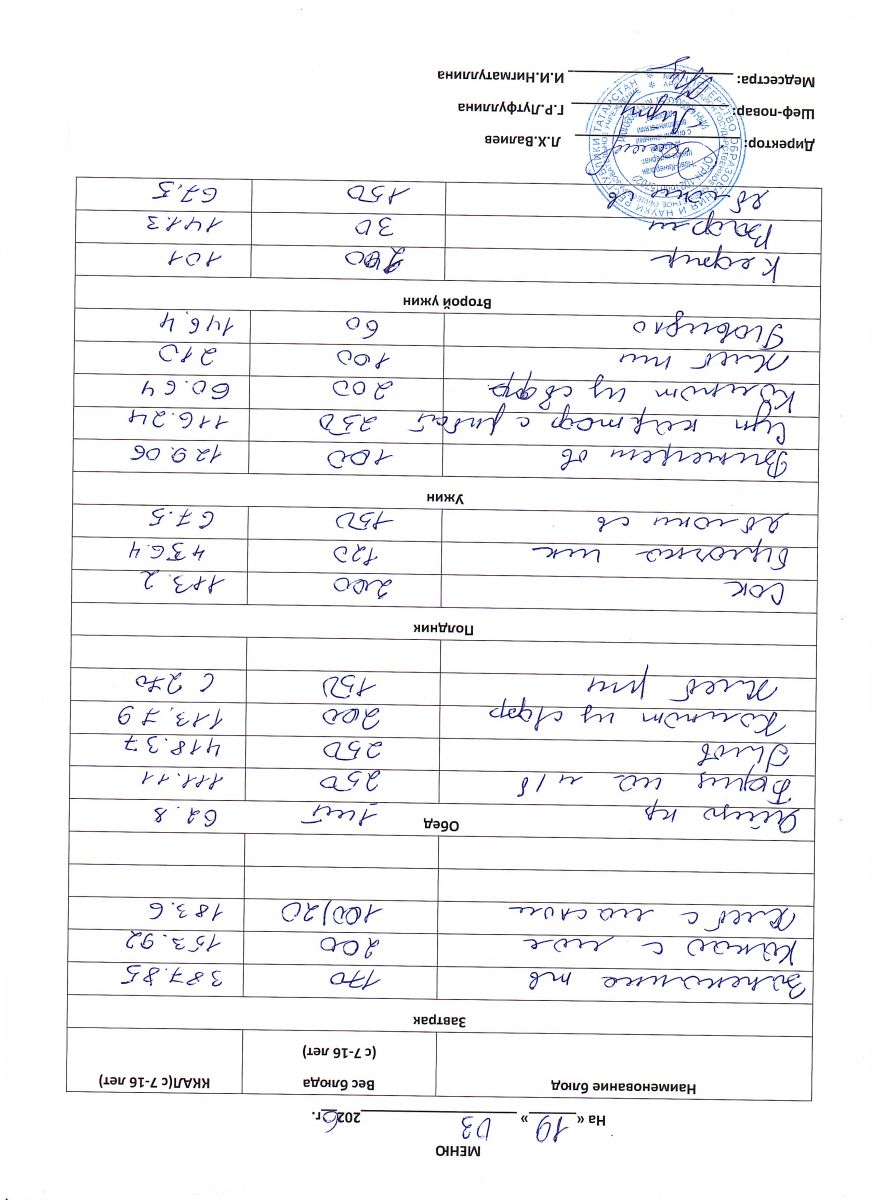 МЕНЮ
На « 19 » 03 2026г.
Наименование блюд Вес блюда (с 7-16 лет) ККАЛ(с 7-16 лет)
Завтрак
Запеканка тв 170 387.85
Какао с мол 200 153.92
Хлеб с маслом 100/20 183.6
Обед
Яйцо кр 1шт 62.8
Борщ на м/б 250 111.11
Плов 250 418.37
Компот из сфр 200 113.79
Хлеб рж 150 270
Полдник
Сок 200 183.2
Булочка 120 436.4
Яблоки св 150 67.5
Ужин
Винегрет ов 100 129.06
Суп картоф с рыбой 250 116.24
Компот из свфр 200 60.64
Хлеб пш 100 210
Повидло 60 146.4
Второй ужин
Кефир 200 101
Вафли 30 141.3
Яблоки св 150 67.5
Директор: Л.Х.Валиев
Шеф-повар: Г.Р.Лутфуллина
Медсестра: И.И.Нигматуллина